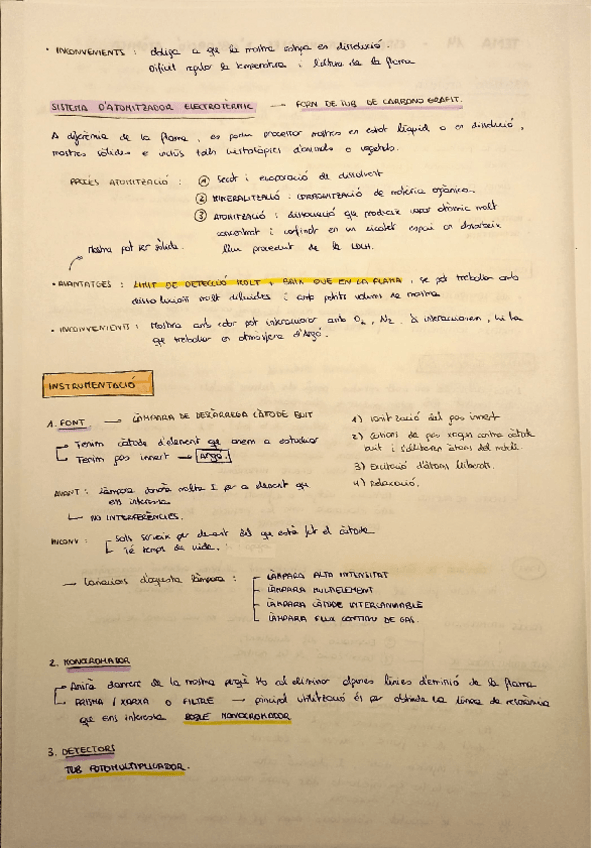 • INCONVENIENTS : obliga a que la mostra estigui en dissolució.
Difícil regular la temperatura i lectura de la flama
SISTEMA D'ATOMITZADOR ELECTROTÈRMIC → FORN DE TUB DE CARBONO GRAFIT.
A diferència de la flama, es poden processar mostres en estat líquid o en dissolució,
mostres sòlides e inclús talls histològics d'animals o vegetals.
PROCÉS ATOMITZACIÓ : ① Secat i evaporació de dissolvent
② MINERALITZACIÓ : carbonització de matèria orgànica.
③ ATOMITZACIÓ : dissociació que produeix vapor atòmic molt
concentrat i confinat en un espai en
llum procedent de la LDCH.
Mostra pot ser sòlida.
• AVANTATGES : LIMIT DE DETECCIÓ MOLT + BAIX QUE EN LA FLAMA, se pot treballar amb
dissolucions molt diluïdes i amb petits volums de mostra
• INCONVENIENTS : Mostra amb calor pot interaccionar amb O2, N2. Si interaccionen, hi ha
que treballar en atmosfera d'Argó.
INSTRUMENTACIÓ
1. FONT → LÀMPARA DE DESCÀRREGA CÀTODE BUIT
Tenim càtode d'element que anem a estudiar
Tenim gas innert → Argó.
AVANT : làmpara donarà molta I per a l'element que
ens interessa
NO INTERFERÈNCIES.
INCONV : Sols serveix per element del que està fet el càtode
Té temps de vida.
1) Ionització del gas innert
2) Cations de gas xoquen contra càtode
buit i s'alliberen àtoms del metall.
3) Excitació d'àtoms lliberats.
4) Relaxació.
→ Variacions d'aquesta làmpara : LÀMPARA ALTA INTENSITAT
LÀMPARA MULTIELEMENT
LÀMPARA CÀTODE INTERCANVIABLE
LÀMPARA FLUX CONTINU DE GAS.
2. MONOCROMADOR
Anirà darrere de la mostra perquè té al eliminar algunes línies d'emissió de la flama
PRISMA / XARXA O FILTRE → principal utilització és per obtindre la línea de resonància
que ens interessa DOBLE MONOCROMADOR
3. DETECTORS
TUB FOTOMULTIPLICADOR.